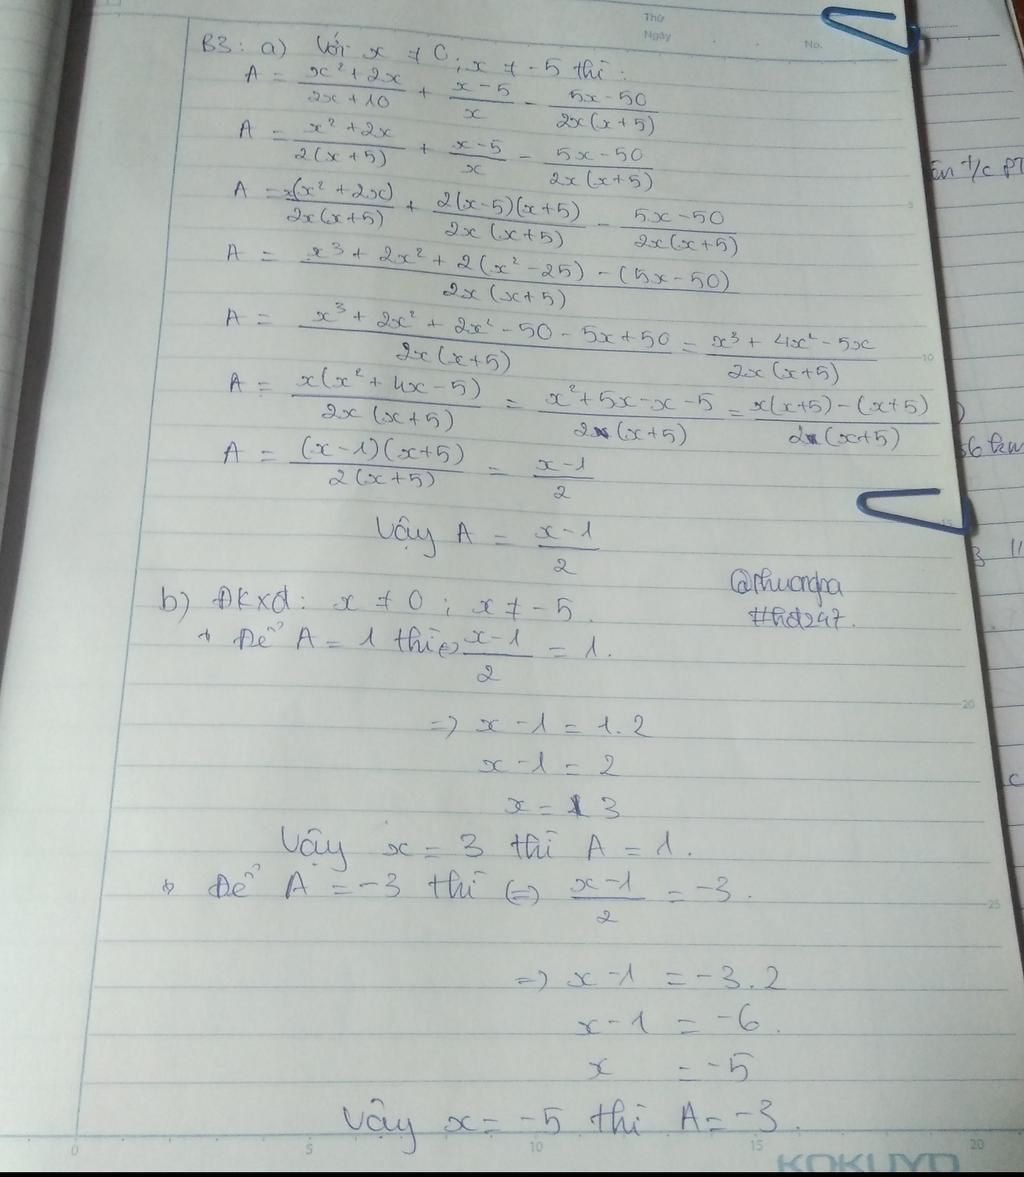 Thứ
Ngày
No.
B3: a) Với x ≠ 0; x ≠ -5 thì:
A = (x² + 2x)/(2x + 10) + (x - 5)/x - (5x - 50)/(2x(x + 5))
A = (x² + 2x)/(2(x + 5)) + (x - 5)/x - (5x - 50)/(2x(x + 5))
A = x(x² + 2x)/(2x(x + 5)) + 2(x - 5)(x + 5)/(2x(x + 5)) - (5x - 50)/(2x(x + 5))
A = (x³ + 2x² + 2(x² - 25) - (5x - 50))/(2x(x + 5))
A = (x³ + 2x² + 2x² - 50 - 5x + 50)/(2x(x + 5)) = (x³ + 4x² - 5x)/(2x(x + 5))
A = x(x² + 4x - 5)/(2x(x + 5)) = (x² + 5x - x - 5)/(2(x + 5)) = (x(x + 5) - (x + 5))/(2(x + 5))
A = (x - 1)(x + 5)/(2(x + 5)) = (x - 1)/2
Vậy A = (x - 1)/2
@Phuongna
#hd247.
b) ĐKXĐ: x ≠ 0; x ≠ -5.
+ Để A = 1 thì ⇔ (x - 1)/2 = 1.
=> x - 1 = 1.2
x - 1 = 2
x = 3
Vậy x = 3 thì A = 1.
+ Để A = -3 thì ⇔ (x - 1)/2 = -3.
=> x - 1 = -3.2
x - 1 = -6.
x = -5
Vậy x = -5 thì A = -3.
0 5 10 15 20
KOKUYO